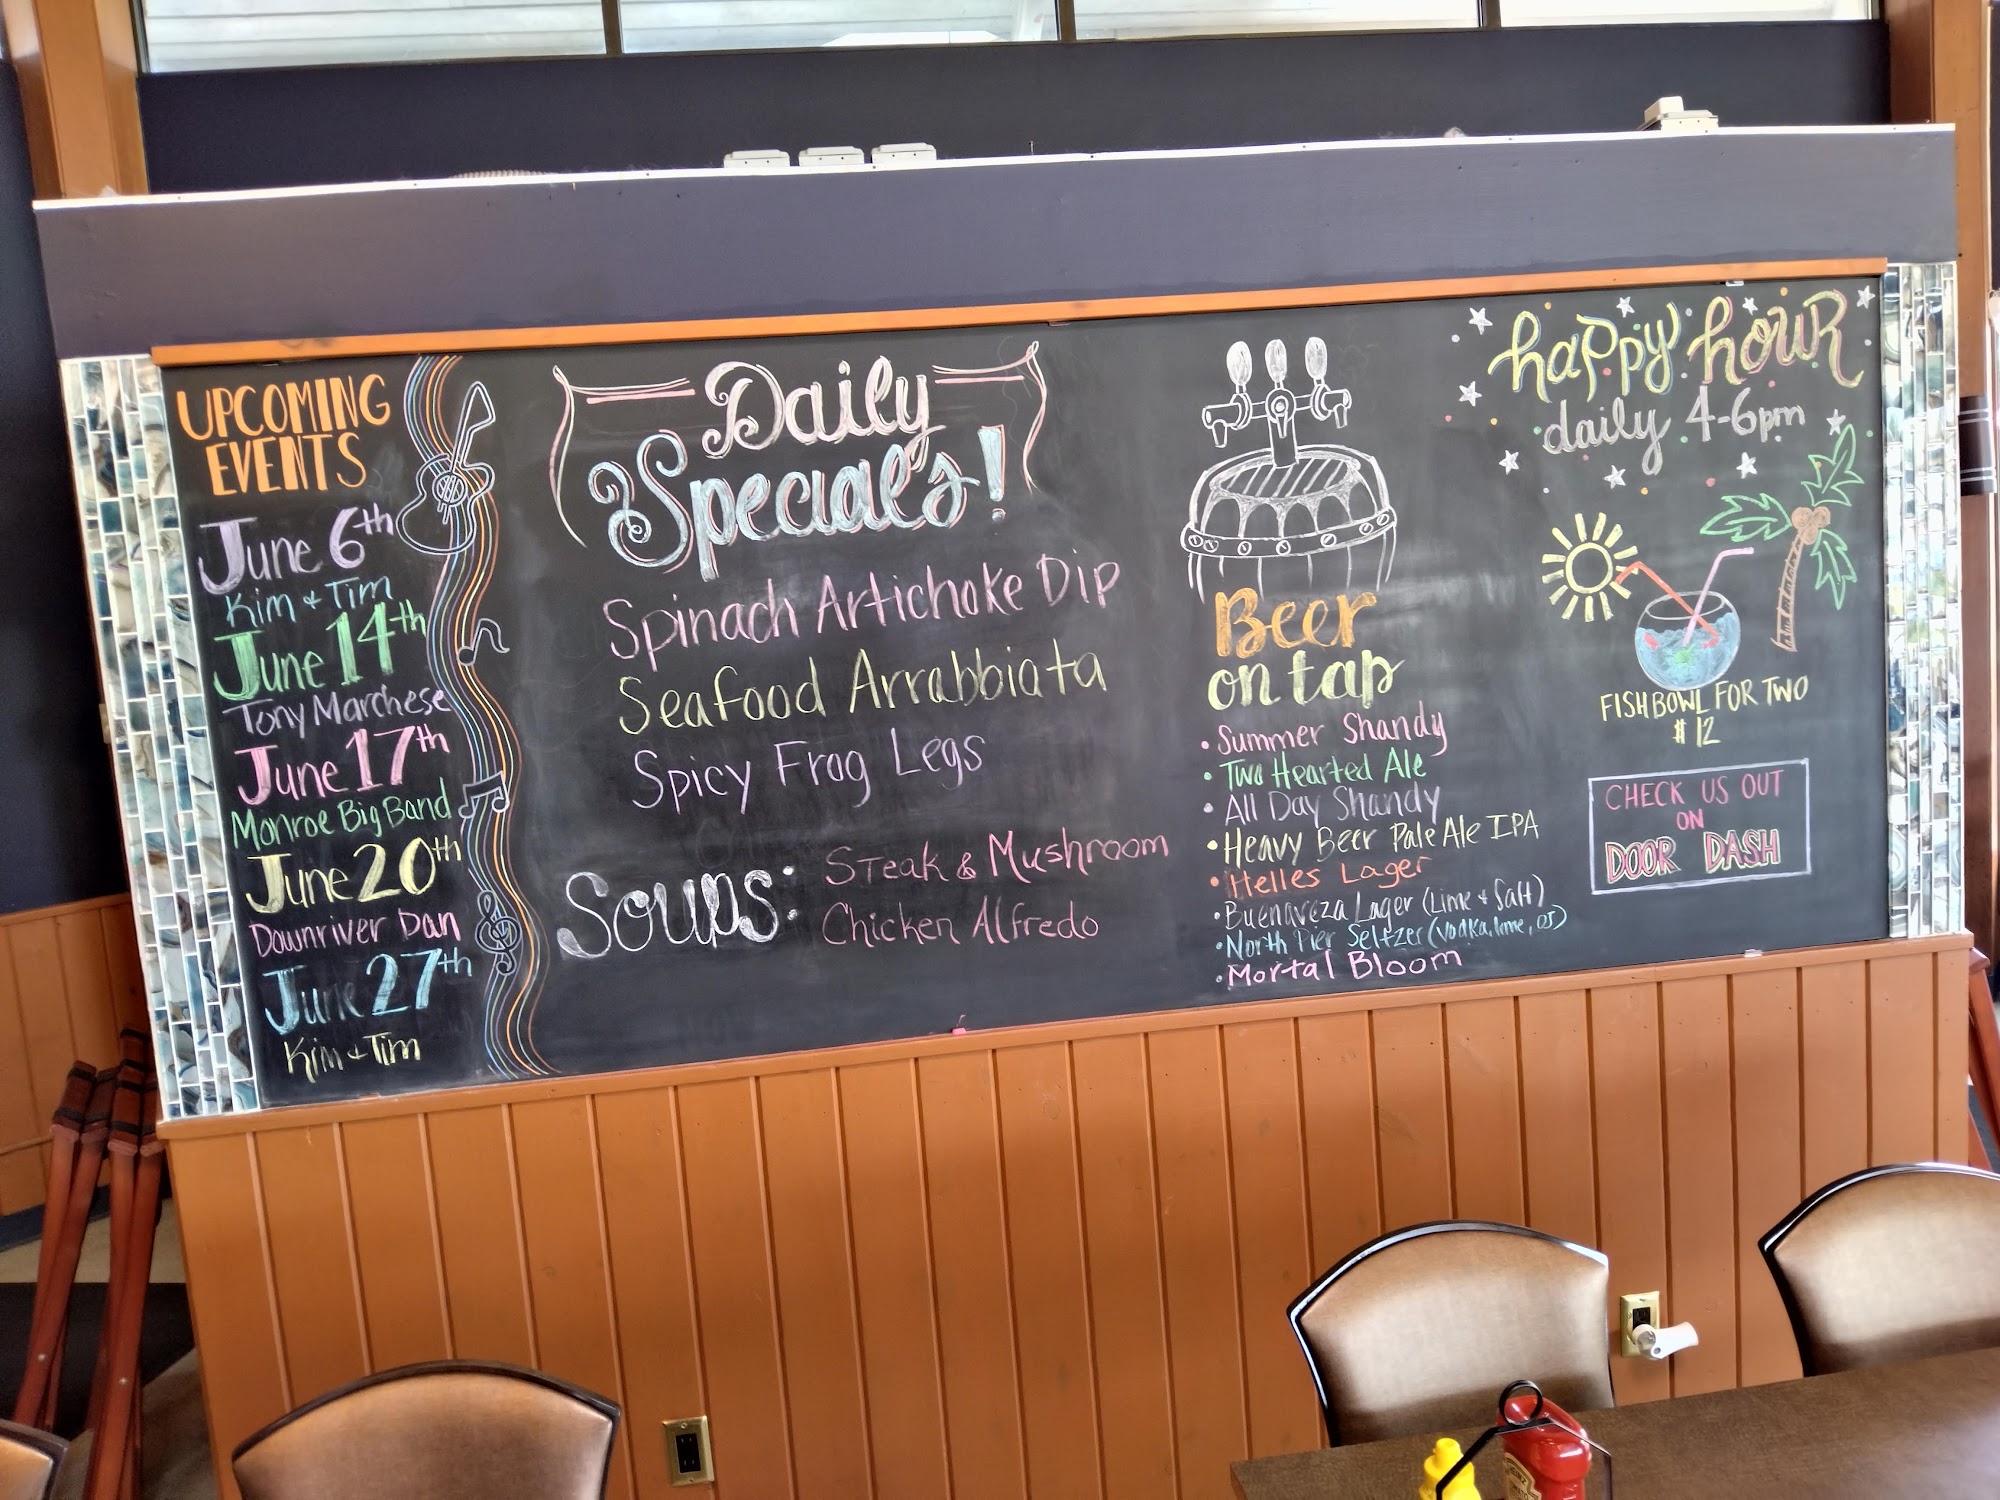 UPCOMING
EVENTS
June 6th
Kim & Tim
June 14th
Tony Marchese
June 17th
Monroe Big Band
June 20th
Downriver Dan
June 27th
Kim & Tim
Daily
Specials!
Spinach Artichoke Dip
Seafood Arrabbiata
Spicy Frog Legs
Soups:
Steak & Mushroom
Chicken Alfredo
Beer
on tap
• Summer Shandy
• Two Hearted Ale
• All Day Shandy
• Heavy Beer Pale Ale IPA
• Helles Lager
• Buenaveza Lager (Lime & Salt)
• North Pier Seltzer (Vodka, lime, OJ)
• Mortal Bloom
happy hour
daily 4-6pm
FISHBOWL FOR TWO
$12
CHECK US OUT
ON
DOOR DASH